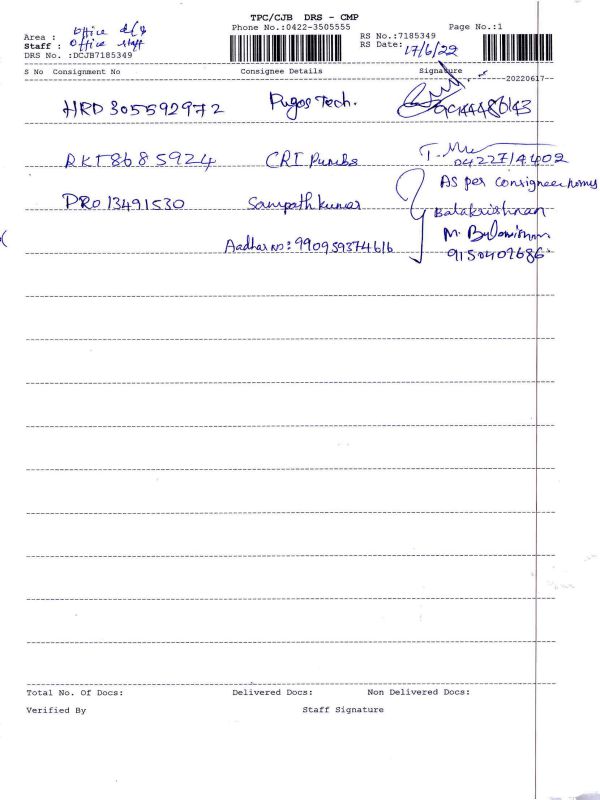 TPC/CJB DRS - CMP
Phone No.:0422-3505555
Page No.:1
Area : office
Staff : office staff
DRS No. :DCJB7185349
RS No.:7185349
RS Date: 17/6/22
S No Consignment No Consignee Details Signature
20220617
HRD 305592972 Tech.
RKT8685924 CRI Pumbs
0422714402
AS per consignee
PRO 13491530 Sampath kumar
Balakrishnan
Aadhar no: 990959374616
M.
9150402686
Total No. Of Docs: Delivered Docs: Non Delivered Docs:
Verified By Staff Signature